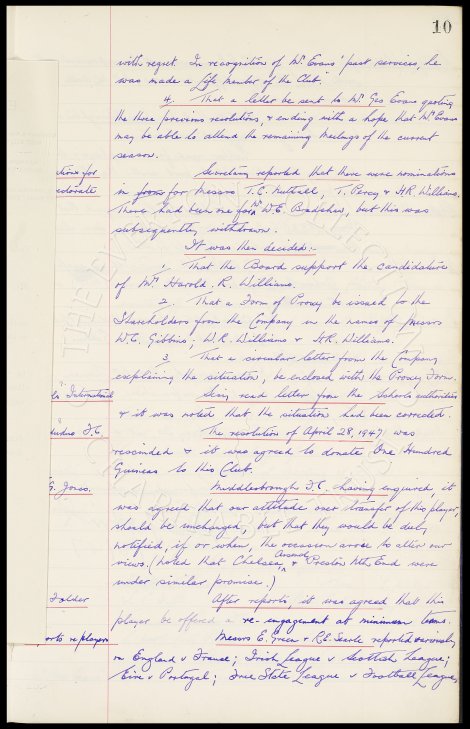 10
with regret. In recognition of Mr. Evans' past services, he
was made a Life Member of the Club.
4. That a letter be sent to Mr. Geo Evans quoting
the three previous resolutions, & ending with a hope that Mr Evans
may be able to attend the remaining Meetings of the current
season.
ations for
ectorate
Secretary reported that there were nominations
in from for Messrs T.C. Nuttall, T. Percy & H.R. Williams.
There had been one for Mr W.C. Bradshaw, but this was
subsequently withdrawn.
It was then decided:-
1. That the Board support the candidature
of Mr. Harold. R. Williams.
2. That a Form of Proxy be issued to the
Shareholders from the Company in the names of Messrs
W.C. Gibbins, W.R. Williams & H.R. Williams.
3. That a circular letter from the Company
explaining the situation, be enclosed with the Proxy Form.
International
Secy read letter from the Schools authorities
& it was noted that the situation had been corrected.
F.C.
The resolution of April 28, 1947 was
rescinded & it was agreed to donate One Hundred
Guineas to this Club.
G. Jones.
Middlesbrough F.C. having enquired, it
was agreed that our attitude over transfer of this player,
should be unchanged, but that they would be duly
notified, if or when, the occasion arose to alter our
views. (Noted that Chelsea, Arsenal & Preston Nth End were
under similar promise.)
Folder
After reports, it was agreed that this
player be offered a re-engagement at minimum terms.
orts re players
Messrs E. Green & R.E. Searle reported variously
on England v France; Irish League v Scottish League;
Eire v Portugal; Free State League v Football League,